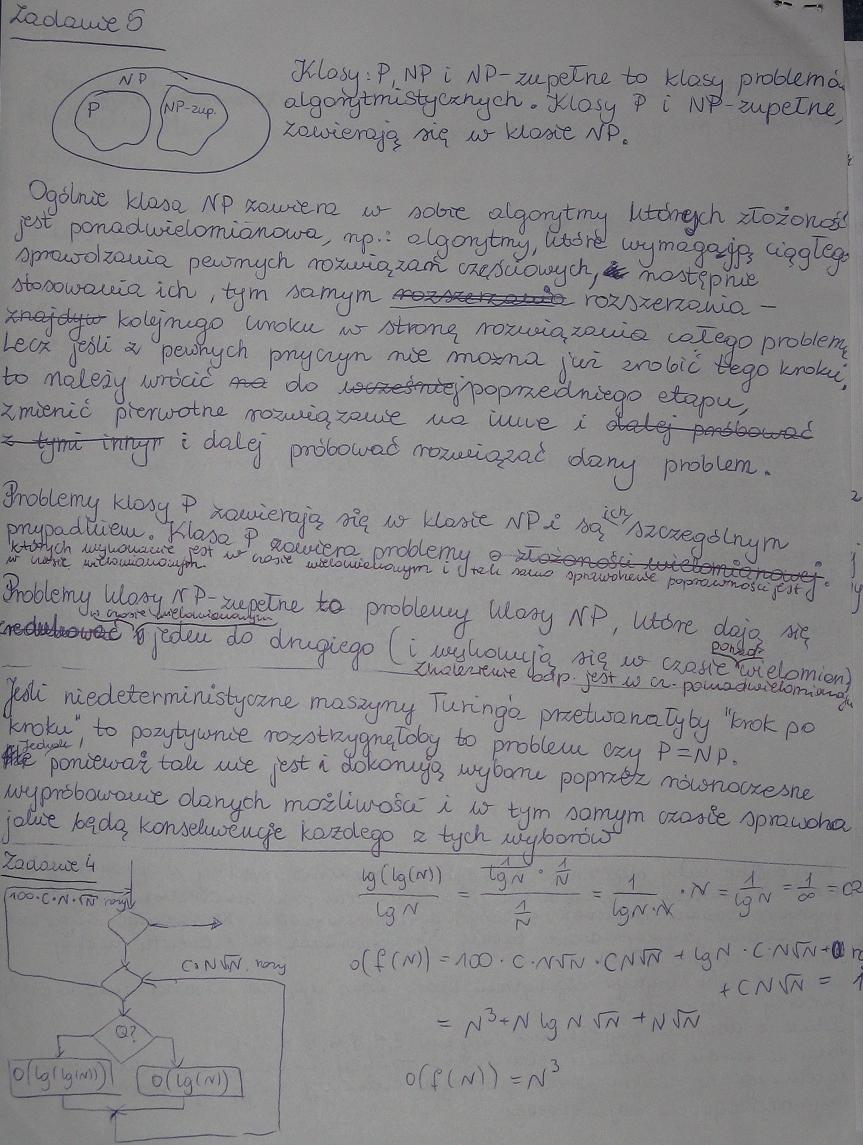 Zadanie 5
NP
P
NP-zup.
Klasy: P, NP i NP-zupełne to klasy problemó
algorytmistycznych. Klasy P i NP-zupełne,
zawierają się w klasie NP.
Ogólnie klasa NP zawiera w sobie algorytmy których złożoność
jest ponadwielomianowa, np.: algorytmy, które wymagają ciągłego
sprawdzania pewnych rozwiązań częściowych, następnie
stosowania ich, tym samym rozszerzania rozszerzania –
znajdyw kolejnego kroku w stronę rozwiązania całego problemu
Lecz jeśli z pewnych przyczyn nie można już zrobić tego kroku,
to należy wrócić na do wcześniej poprzedniego etapu,
zmienić pierwotne rozwiązanie na inne i dalej próbować
z tymi innym i dalej próbować rozwiązać dany problem.
Problemy klasy P zawierają się w klasie NP i są ich szczególnym
przypadkiem. Klasa P zawiera problemy o złożoności wielomianowej.
których wykonanie jest w czasie wielomianowym i tak samo sprawdzenie poprawności jest
w czasie wielomianowym.
Problemy klasy NP-zupełne to problemy klasy NP, które dają się
w czasie wielomianowym
redukować jeden do drugiego (i wykonują się w czasie ponad wielomian)
znalezienie odp. jest w cz. ponadwielomianowym
Jeśli niedeterministyczne maszyny Turing'a przetwarzałyby "krok po
kroku", to pozytywnie rozstrzygnęłoby to problem czy P=NP.
Jednak ponieważ tak nie jest i dokonują wyboru poprzez równoczesne
wypróbowanie danych możliwości i w tym samym czasie sprawdza
jakie będą konsekwencje każdego z tych wyborów
Zadanie 4
100·C·N·√N razy
C·N√N. razy
Q?
O(lg(lg(N)))
O(lg(N))
lg(lg(N)) / lg N = (1/lgN · 1/N) / (1/N) = 1/(lgN·N) · N = 1/lgN = 1/∞ = 0
O(f(N)) = 100·C·N√N·CN√N + lgN·C·N√N+
+CN√N =
= N³+N lg N √N +N√N
O(f(N)) = N³